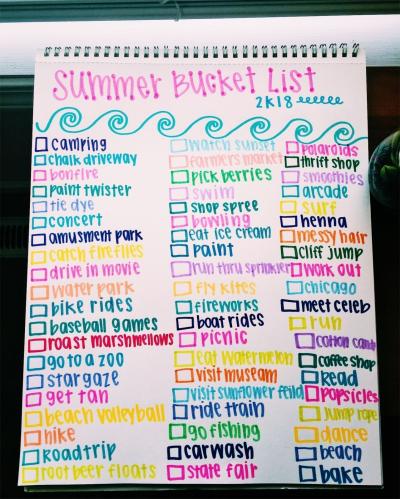 Summer Bucket List
2K18
camping
chalk driveway
bonfire
paint twister
tie dye
concert
amusment park
catch fireflies
drive in movie
water park
bike rides
baseball games
roast marshmellows
go to a zoo
stargaze
get tan
beach volleyball
hike
Roadtrip
root beer floats
watch sunset
farmers market
pick berries
swim
shop spree
bowling
eat ice cream
paint
run thru sprinkler
fly kites
fireworks
boat rides
picnic
eat watermelon
visit museam
visit sunflower feild
ride train
go fishing
carwash
state fair
polaroids
thrift shop
smoothies
arcade
surf
henna
messy hair
cliff jump
work out
chicago
meet celeb
run
cotton candy
coffee shop
Read
popsicles
jump rope
dance
beach
bake